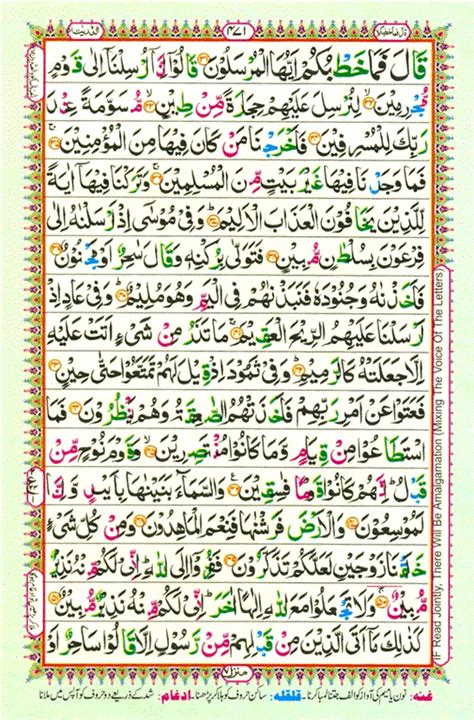 ۴۷۱
قَالَ فَمَا خَطْبُكُمْ اَيُّهَا الْمُرْسَلُوْنَ ۳۱ قَالُوْۤا اِنَّاۤ اُرْسِلْنَاۤ اِلٰى قَوْمٍ
مُّجْرِمِيْنَ ۳۲ لِنُرْسِلَ عَلَيْهِمْ حِجَارَةً مِّنْ طِيْنٍ ۳۳ مُّسَوَّمَةً عِنْدَ
رَبِّكَ لِلْمُسْرِفِيْنَ ۳۴ فَاَخْرَجْنَا مَنْ كَانَ فِيْهَا مِنَ الْمُؤْمِنِيْنَ ۳۵
فَمَا وَجَدْنَا فِيْهَا غَيْرَ بَيْتٍ مِّنَ الْمُسْلِمِيْنَ ۳۶ وَتَرَكْنَا فِيْهَاۤ اٰيَةً
لِّلَّذِيْنَ يَخَافُوْنَ الْعَذَابَ الْاَلِيْمَ ۳۷ وَفِيْ مُوْسٰۤى اِذْ اَرْسَلْنٰهُ اِلٰى
فِرْعَوْنَ بِسُلْطٰنٍ مُّبِيْنٍ ۳۸ فَتَوَلّٰى بِرُكْنِهٖ وَقَالَ سٰحِرٌ اَوْ مَجْنُوْنٌ ۳۹
فَاَخَذْنٰهُ وَجُنُوْدَهٗ فَنَبَذْنٰهُمْ فِي الْيَمِّ وَهُوَ مُلِيْمٌ ۴۰ وَفِيْ عَادٍ اِذْ
اَرْسَلْنَا عَلَيْهِمُ الرِّيْحَ الْعَقِيْمَ ۴۱ مَا تَذَرُ مِنْ شَيْءٍ اَتَتْ عَلَيْهِ
اِلَّا جَعَلَتْهُ كَالرَّمِيْمِ ۴۲ وَفِيْ ثَمُوْدَ اِذْ قِيْلَ لَهُمْ تَمَتَّعُوْا حَتّٰى حِيْنٍ ۴۳
فَعَتَوْا عَنْ اَمْرِ رَبِّهِمْ فَاَخَذَتْهُمُ الصّٰعِقَةُ وَهُمْ يَنْظُرُوْنَ ۴۴ فَمَا
اسْتَطَاعُوْا مِنْ قِيَامٍ وَّمَا كَانُوْا مُنْتَصِرِيْنَ ۴۵ وَقَوْمَ نُوْحٍ مِّنْ
قَبْلُ اِنَّهُمْ كَانُوْا قَوْمًا فٰسِقِيْنَ ۴۶ وَالسَّمَآءَ بَنَيْنٰهَا بِاَيْىدٍ وَّاِنَّا
لَمُوْسِعُوْنَ ۴۷ وَالْاَرْضَ فَرَشْنٰهَا فَنِعْمَ الْمٰهِدُوْنَ ۴۸ وَمِنْ كُلِّ شَيْءٍ
خَلَقْنَا زَوْجَيْنِ لَعَلَّكُمْ تَذَكَّرُوْنَ ۴۹ فَفِرُّوْۤا اِلَى اللّٰهِ اِنِّيْ لَكُمْ مِّنْهُ نَذِيْرٌ
مُّبِيْنٌ ۵۰ وَلَا تَجْعَلُوْا مَعَ اللّٰهِ اِلٰهًا اٰخَرَ اِنِّيْ لَكُمْ مِّنْهُ نَذِيْرٌ مُّبِيْنٌ ۵۱
كَذٰلِكَ مَاۤ اَتَى الَّذِيْنَ مِنْ قَبْلِهِمْ مِّنْ رَّسُوْلٍ اِلَّا قَالُوْا سَاحِرٌ اَوْ
منزل ۷
(IF Read Jointly, There Will Be Amalgamation (Mixing The Voice Of The Letters)
غنه: نون یا میم کی آواز کو الف جتنا لمبا کرنا۔ قلقله: ساکن حروف کو ہلا کر پڑھنا ادغام: شد کے ذریعے دو حروف کو آپس میں ملانا